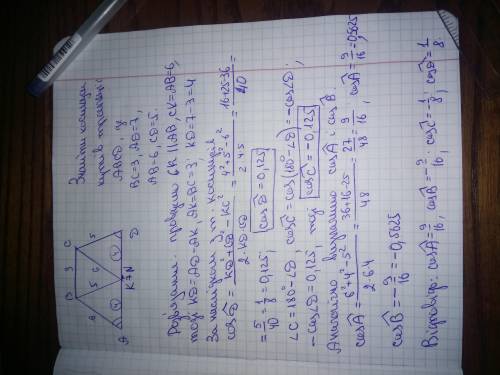 Знайти косинуси
кутів трапеції
ABCD, де
BC=3, AD=7,
AB=6, CD=5.
B 3 C
6 5 6 5
A K N D
Розв'язання: проведемо CK || AB, CK=AB=6,
тоді KD=AD-AK, AK=BC=3; KD=7-3=4
За наслідком з т. косинусів
cos D = KD²+CD²-KC² / 2·KD·CD = 4²+5²-6² / 2·4·5 = 16+25-36 / 40 =
= 5/40 = 1/8 = 0,125; cos D = 0,125
∠C=180-∠D, cos C = cos(180-∠D) = -cos∠D.
-cos∠D = 0,125, тоді cos C = -0,125
Аналогічно виразимо cos A і cos B
cos A = 6²+4²-5² / 2·6·4 = 36+16-25 / 48 = 27/48 = 9/16, cos A = 9/16 = 0,5625
cos B = -9/16 = -0,5625
Відповідь: cos A = 9/16, cos B = -9/16, cos C = -1/8, cos D = 1/8.